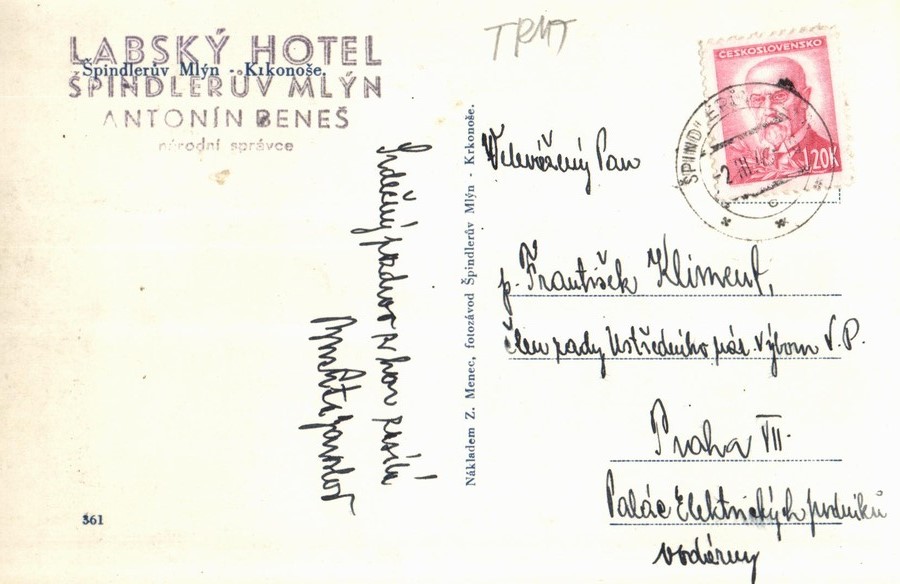 LABSKÝ HOTEL
Špindlerův Mlýn - Krkonoše.
ŠPINDLERŮV MLÝN
ANTONÍN BENEŠ
národní správce
TRMT
ČESKOSLOVENSKO
1.20K
ŠPINDLERŮV
2.III.
Velevážený Pan
p. František Kliment,
člen rady Ústředního nár. výboru V. P.
Praha VII.
Palác Elektrických podniků
vodárny
Nákladem Z. Menec, fotozávod Špindlerův Mlýn - Krkonoše.
Srdečný pozdrav z hor zasílá
361